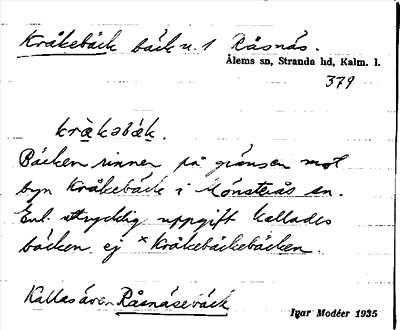 Kråkebäck bäck n. 1 Råsnäs.
Ålems sn, Stranda hd, Kalm. l.
379
kràkəbák.
Bäcken rinner på gränsen mot
byn Kråkebäck i Mönsterås sn.
Enl. uttrycklig uppgift kallades
bäcken ej ×Kråkebäckebäcken.
Kallas även Råsnäsebäck
Ivar Modéer 1935